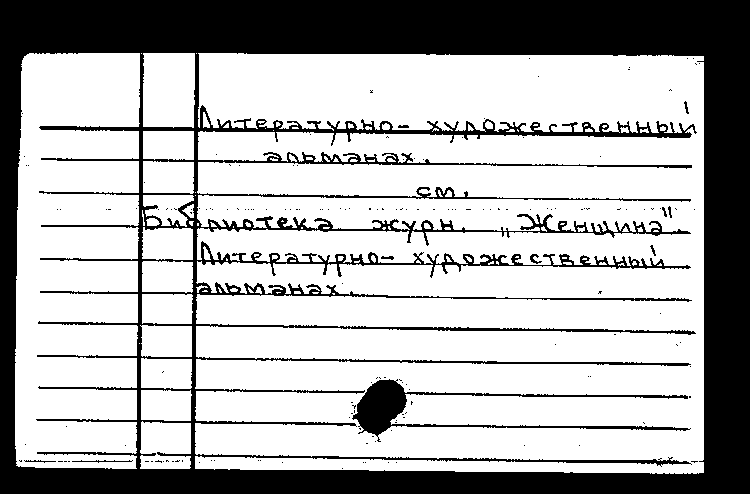 Литературно- художественный
альманах.
см.
Библиотека журн. „Женщина".
Литературно- художественный
альманах.